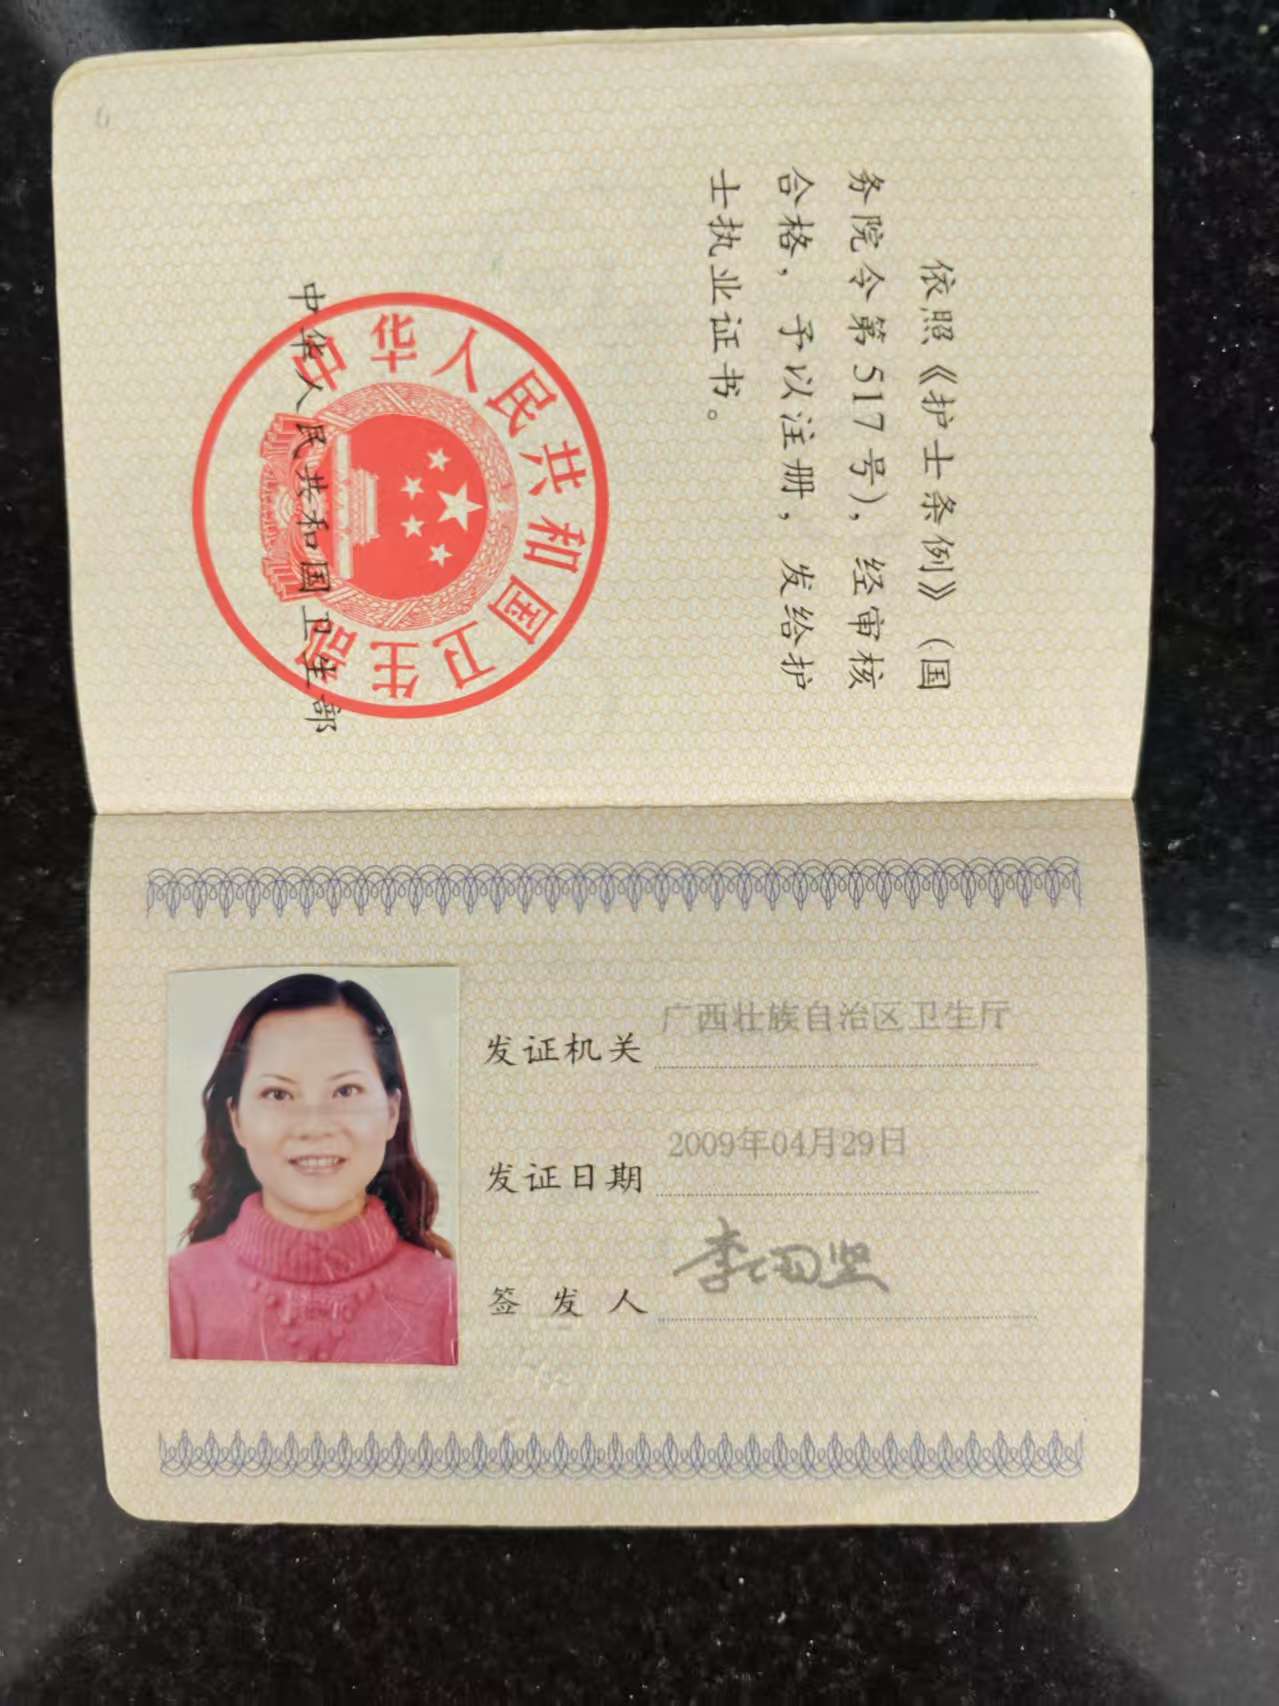 依照《护士条例》（国
务院令第517号），经审核
合格，予以注册，发给护
士执业证书。
中华人民共和国卫生部
中华人民共和国卫生部
发证机关 广西壮族自治区卫生厅
发证日期 2009年04月29日
签发人